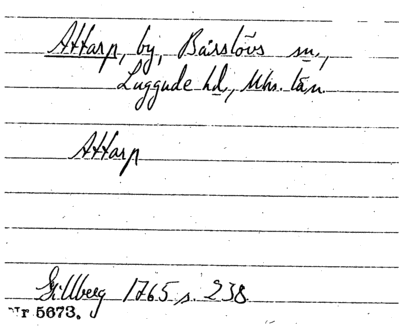 Attarp, by, Bårslövs sn,
Luggude hd, Mlm. län
Attarp
Gillberg 1765 s. 238
Nr 5673.